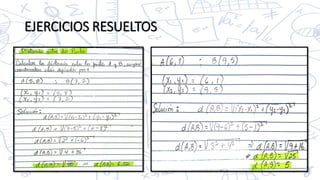 EJERCICIOS RESUELTOS
Distancia entre dos Puntos
Calcular la distancia entre los puntos A y B, cuyas
coordenadas están definidas por:
A(5,8) ; B(7,2)
(x₁,y₁) = (5,8)
(x₂,y₂) = (7,2)
Solución:
d(A,B) = √(x₂-x₁)² + (y₂-y₁)²
d(A,B) = √(7-5)² + (2-8)²
d(A,B) = √2² + (-6)²
d(A,B) = √4 + 36
d(A,B) = √40 ⇒ d(A,B) = 6.32
A(6,1) ; B(9,5)
(x₁,y₁) = (6,1)
(x₂,y₂) = (9,5)
Solución:
d(A,B) = √(x₂-x₁)² + (y₂-y₁)²
d(A,B) = √(9-6)² + (5-1)²
d(A,B) = √3² + 4² ⇒ d(A,B) = √9+16
d(A,B) = √25
d(A,B) = 5